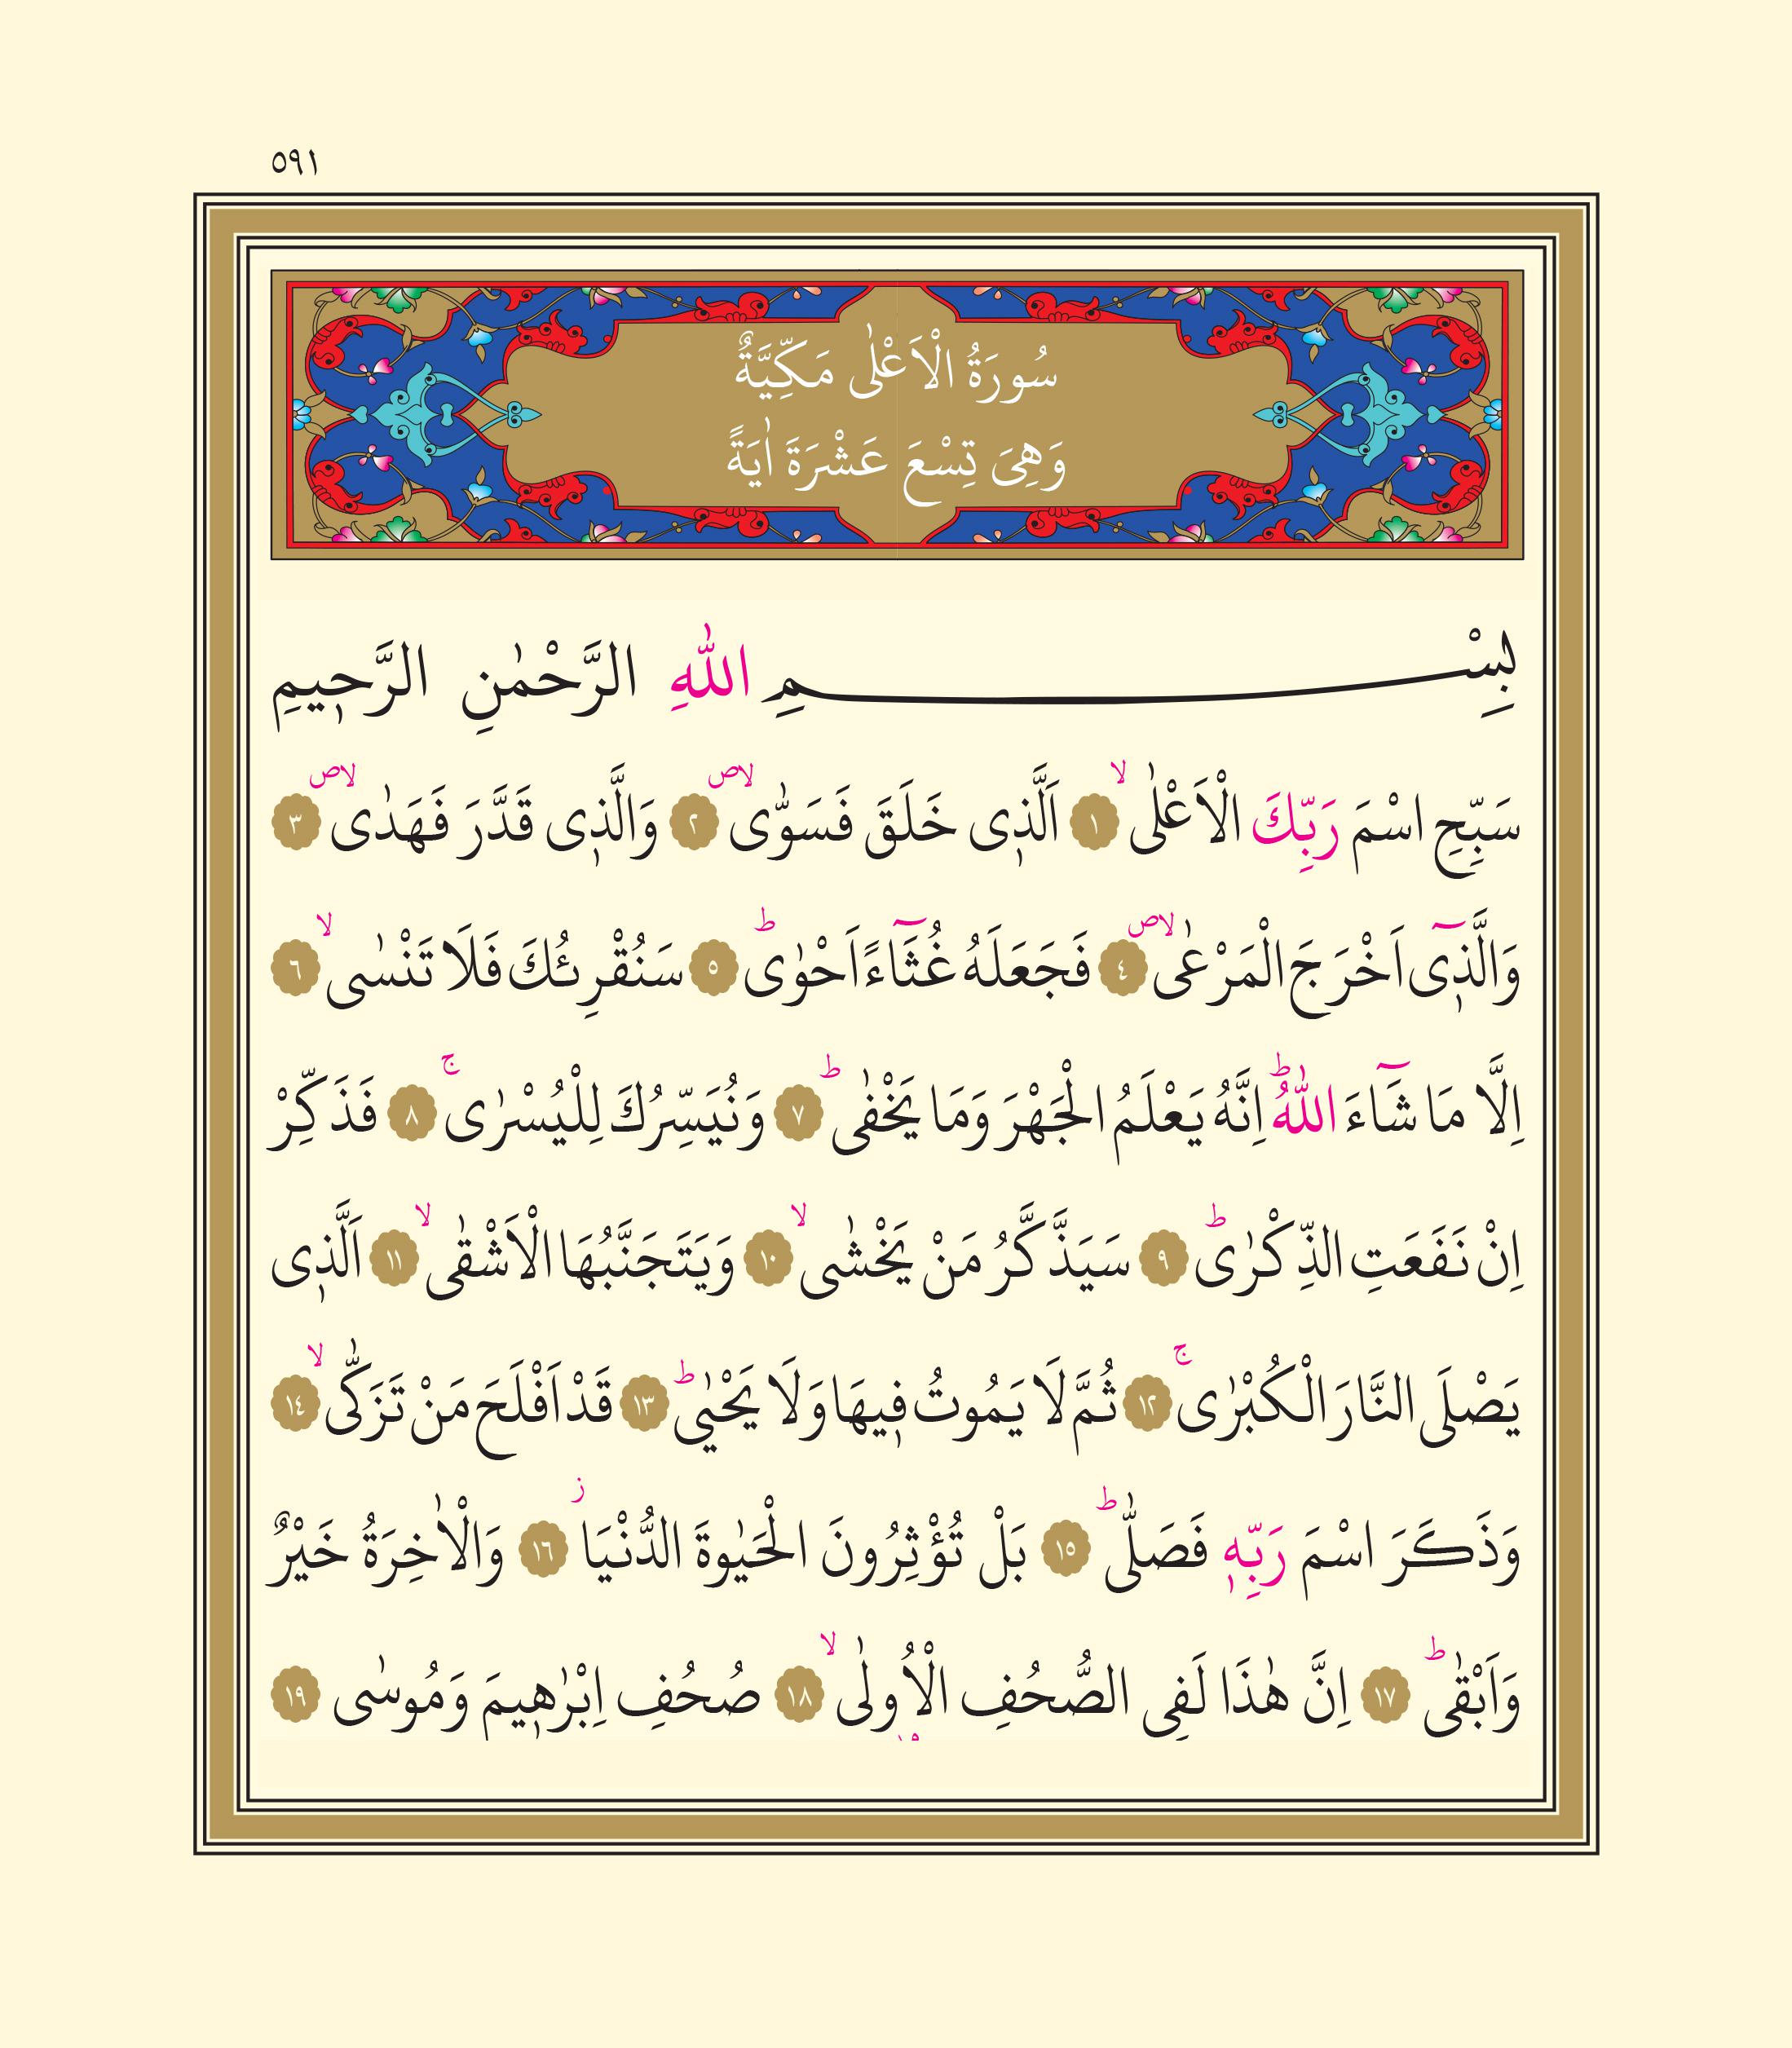 ٥٩١
سُورَةُ الْاَعْلٰى مَكِّيَّةٌ
وَهِىَ تِسْعَ عَشْرَةَ اٰيَةً
بِسْـــــــــمِ اللّٰهِ الرَّحْمٰنِ الرَّح۪يمِ
سَبِّحِ اسْمَ رَبِّكَ الْاَعْلٰىۙ ﴿١﴾ اَلَّذ۪ى خَلَقَ فَسَوّٰىۙۖ ﴿٢﴾ وَالَّذ۪ى قَدَّرَ فَهَدٰىۙۖ ﴿٣﴾
وَالَّذ۪ٓى اَخْرَجَ الْمَرْعٰىۙۖ ﴿٤﴾ فَجَعَلَهُ غُثَٓاءً اَحْوٰىۜ ﴿٥﴾ سَنُقْرِئُكَ فَلَا تَنْسٰىۙ ﴿٦﴾
اِلَّا مَا شَٓاءَ اللّٰهُۜ اِنَّهُ يَعْلَمُ الْجَهْرَ وَمَا يَخْفٰىۜ ﴿٧﴾ وَنُيَسِّرُكَ لِلْيُسْرٰىۚ ﴿٨﴾ فَذَكِّرْ
اِنْ نَفَعَتِ الذِّكْرٰىۜ ﴿٩﴾ سَيَذَّكَّرُ مَنْ يَخْشٰىۙ ﴿١٠﴾ وَيَتَجَنَّبُهَا الْاَشْقٰىۙ ﴿١١﴾ اَلَّذ۪ى
يَصْلَى النَّارَ الْكُبْرٰىۚ ﴿١٢﴾ ثُمَّ لَا يَمُوتُ ف۪يهَا وَلَا يَحْيٰىۜ ﴿١٣﴾ قَدْ اَفْلَحَ مَنْ تَزَكّٰىۙ ﴿١٤﴾
وَذَكَرَ اسْمَ رَبِّه۪ فَصَلّٰىۜ ﴿١٥﴾ بَلْ تُؤْثِرُونَ الْحَيٰوةَ الدُّنْيَاۘ ﴿١٦﴾ وَالْاٰخِرَةُ خَيْرٌ
وَاَبْقٰىۜ ﴿١٧﴾ اِنَّ هٰذَا لَفِى الصُّحُفِ الْاُولٰىۙ ﴿١٨﴾ صُحُفِ اِبْرٰه۪يمَ وَمُوسٰى ﴿١٩﴾